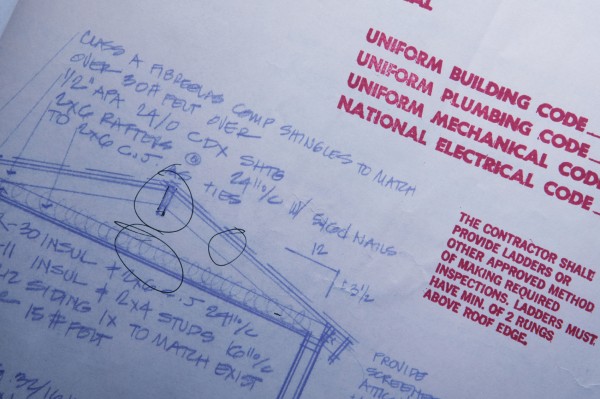 AL
UNIFORM BUILDING CODE
UNIFORM PLUMBING CODE
UNIFORM MECHANICAL CODE
NATIONAL ELECTRICAL CODE
THE CONTRACTOR SHALL
PROVIDE LADDERS OR
OTHER APPROVED METHOD
OF MAKING REQUIRED
INSPECTIONS. LADDERS MUST
HAVE MIN. OF 2 RUNGS
ABOVE ROOF EDGE.
CLASS A FIBREGLAS COMP SHINGLES TO MATCH
OVER 30# FELT OVER
1/2" APA 24/0 CDX SHTG
2X6 RAFTERS @ 24"O/C W/
TO 2X6 C.J. TIES
12
±3 1/2
R-30 INSUL & C.J. 24"O/C
-11 INSUL & 2X4 STUDS 16"O/C
SIDING 1X TO MATCH EXIST
15# FELT
PROVIDE